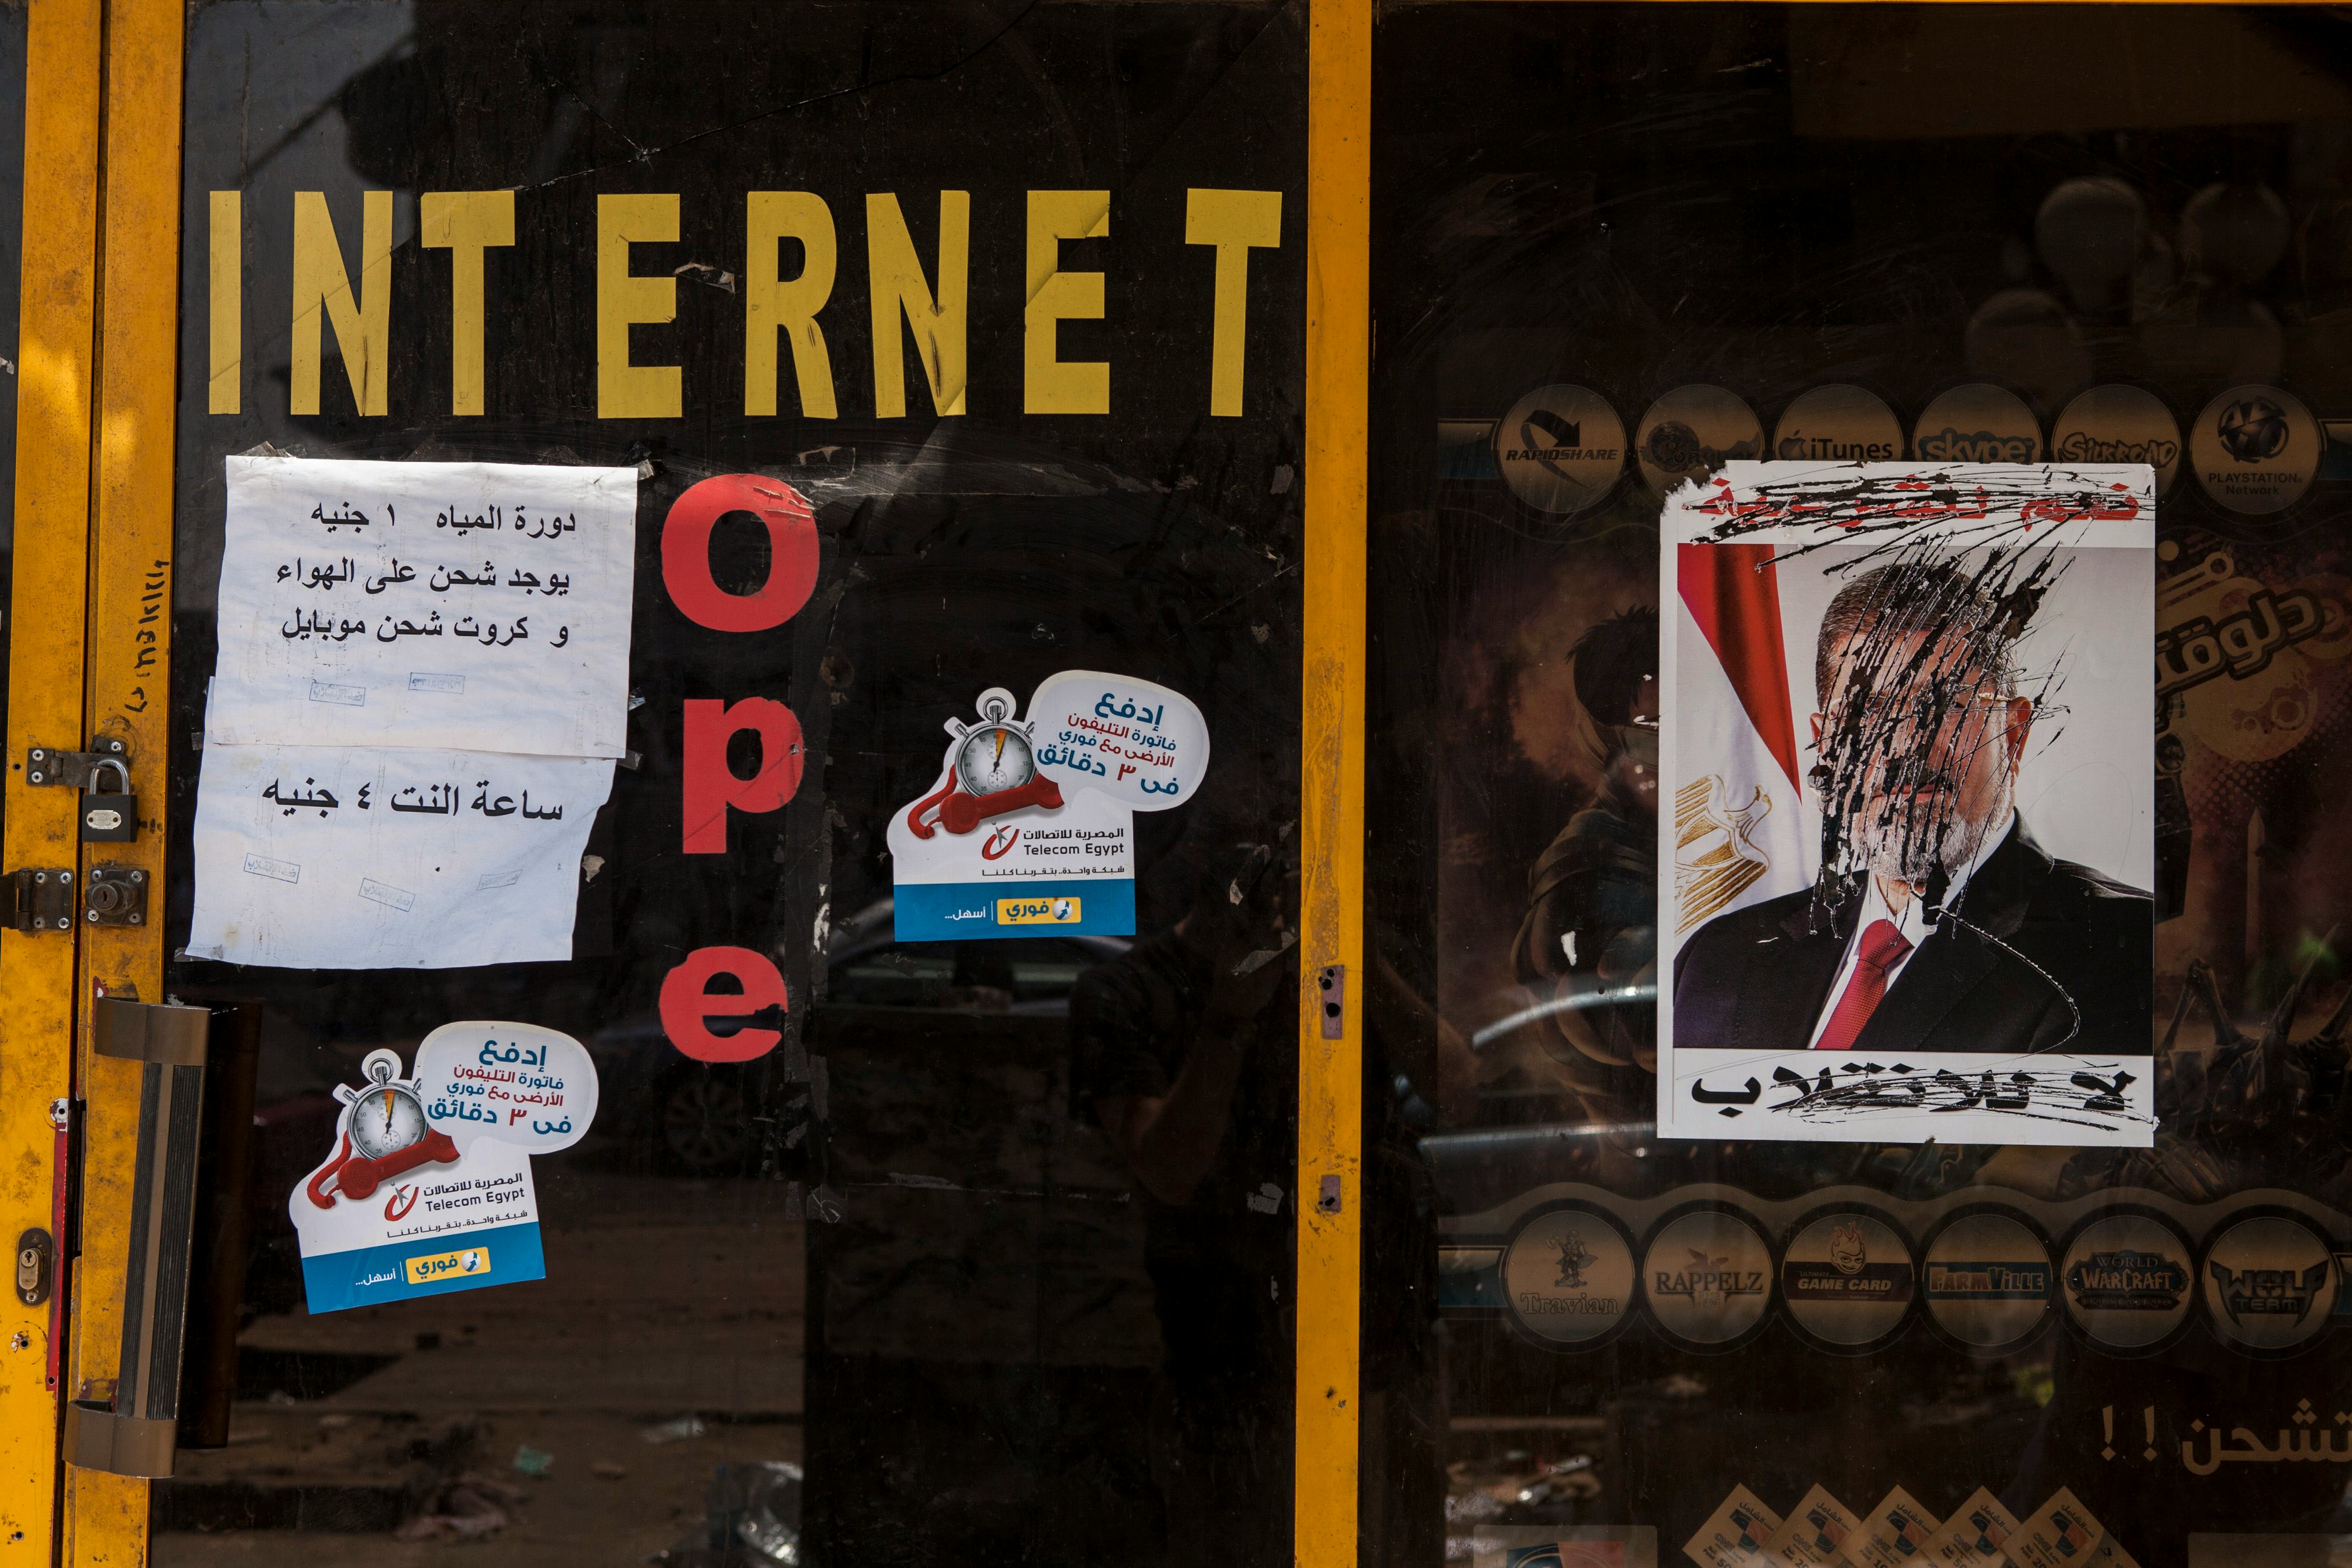 INTERNET
دورة المياه ١ جنيه
يوجد شحن على الهواء
و كروت شحن موبايل
ساعة النت ٤ جنيه
Ope
إدفع
فاتورة التليفون
الأرضى مع فوري
فى ٣ دقائق
المصرية للاتصالات
Telecom Egypt
شبكة واحدة.. بتقربنا كلنا
فوري أسهل...
إدفع
فاتورة التليفون
الأرضى مع فوري
فى ٣ دقائق
المصرية للاتصالات
Telecom Egypt
شبكة واحدة.. بتقربنا كلنا
فوري أسهل...
RAPIDSHARE
iTunes
skype
SILKROAD
PLAYSTATION
Network
لا للانقلاب
Travian
RAPPELZ
ULTIMATE
GAME CARD
FARMVILLE
WORLD
WARCRAFT
WOLF
TEAM
تشحن !!